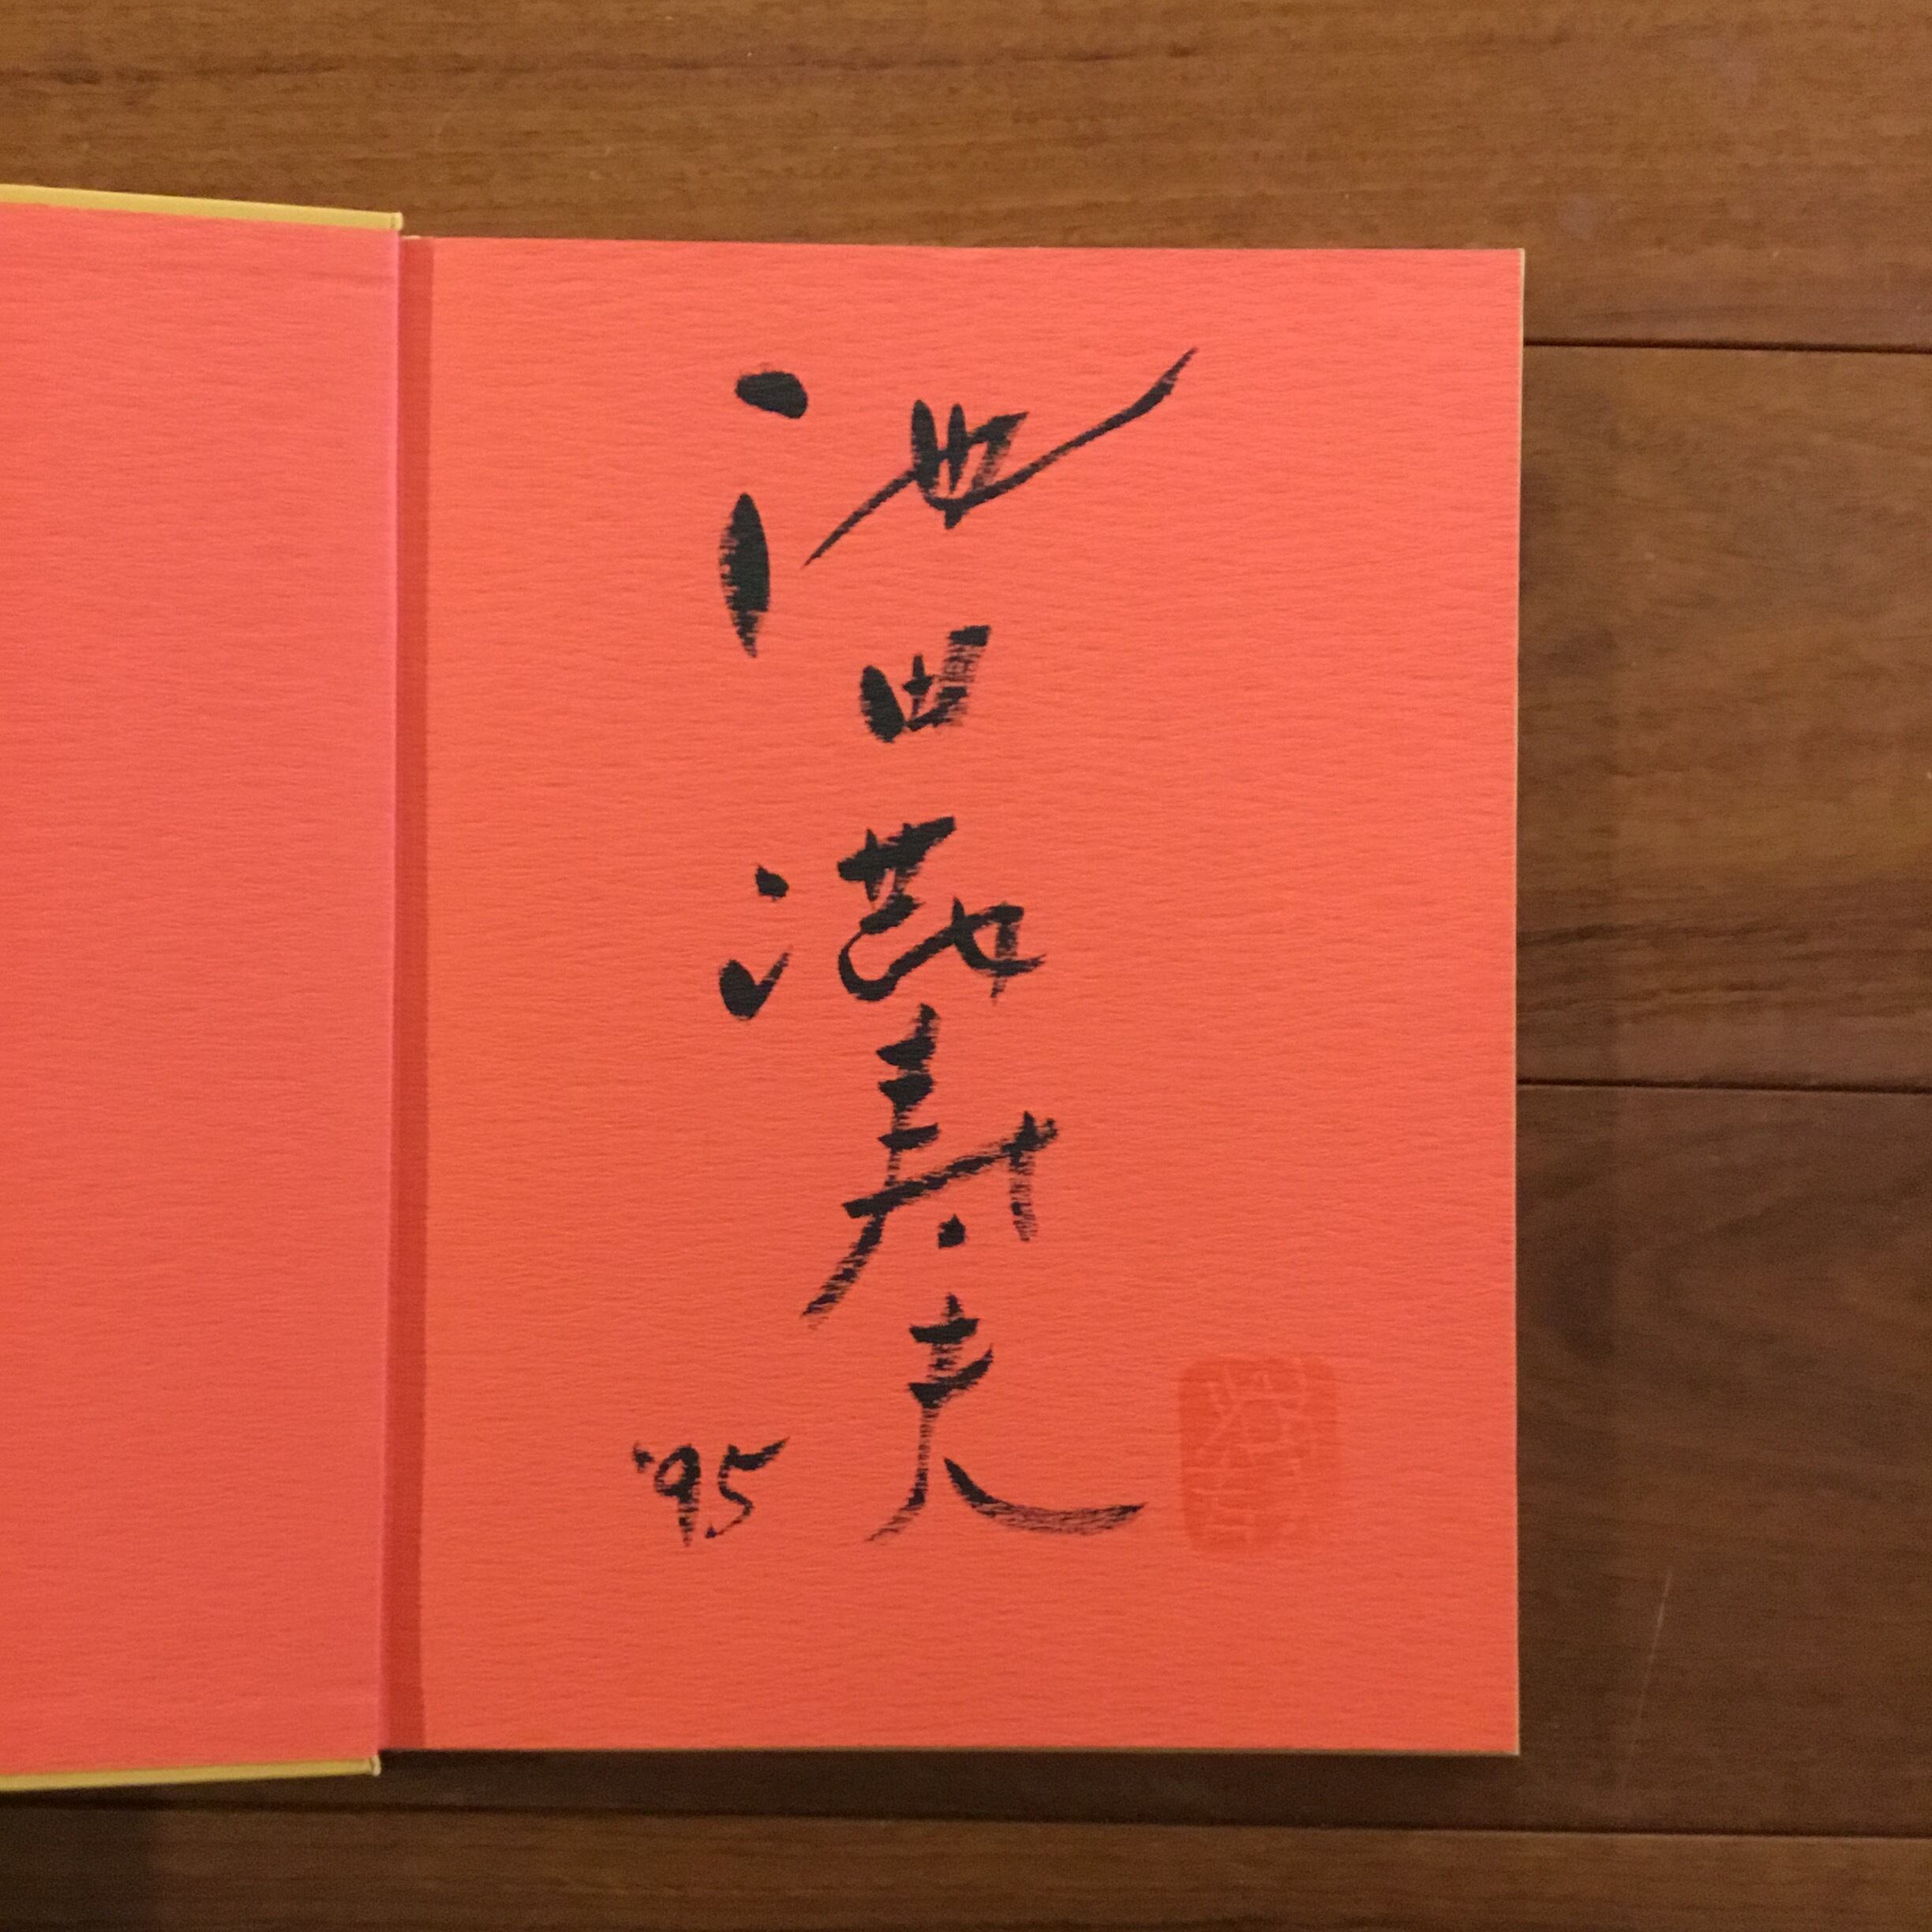 池田満寿夫
'95